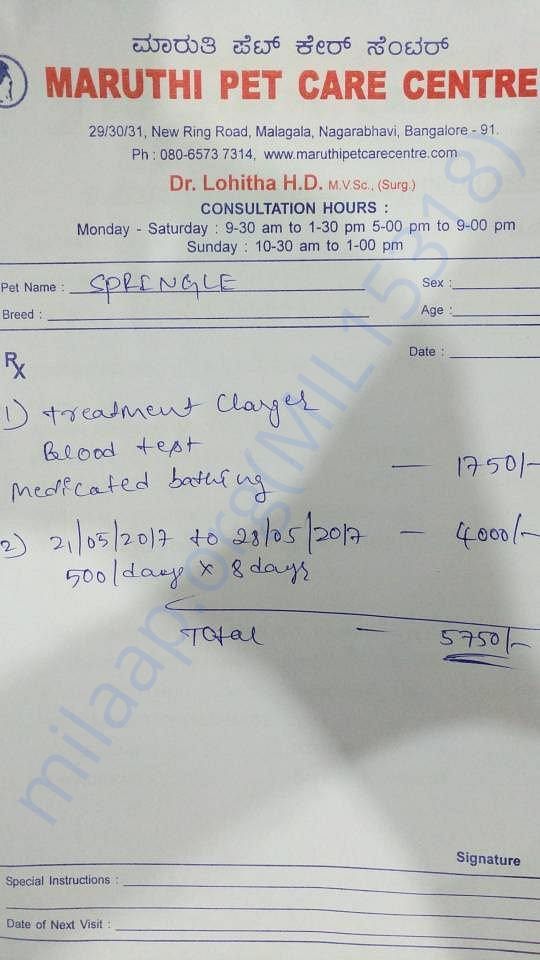 ಮಾರುತಿ ಪೆಟ್ ಕೇರ್ ಸೆಂಟರ್
MARUTHI PET CARE CENTRE
29/30/31, New Ring Road, Malagala, Nagarabhavi, Bangalore - 91.
Ph : 080-6573 7314, www.maruthipetcarecentre.com
Dr. Lohitha H.D. M.V.Sc., (Surg.)
CONSULTATION HOURS :
Monday - Saturday : 9-30 am to 1-30 pm 5-00 pm to 9-00 pm
Sunday : 10-30 am to 1-00 pm
Pet Name : SPRINGLE Sex :
Breed : Age :
Rx Date :
1) treatment Charges
Blood test
Medicated bathing — 1750/-
2) 21/05/2017 to 28/05/2017 — 4000/-
500/days × 8 days
Total — 5750/-
Signature
Special Instructions :
Date of Next Visit :
milaap.org(MIL15318)